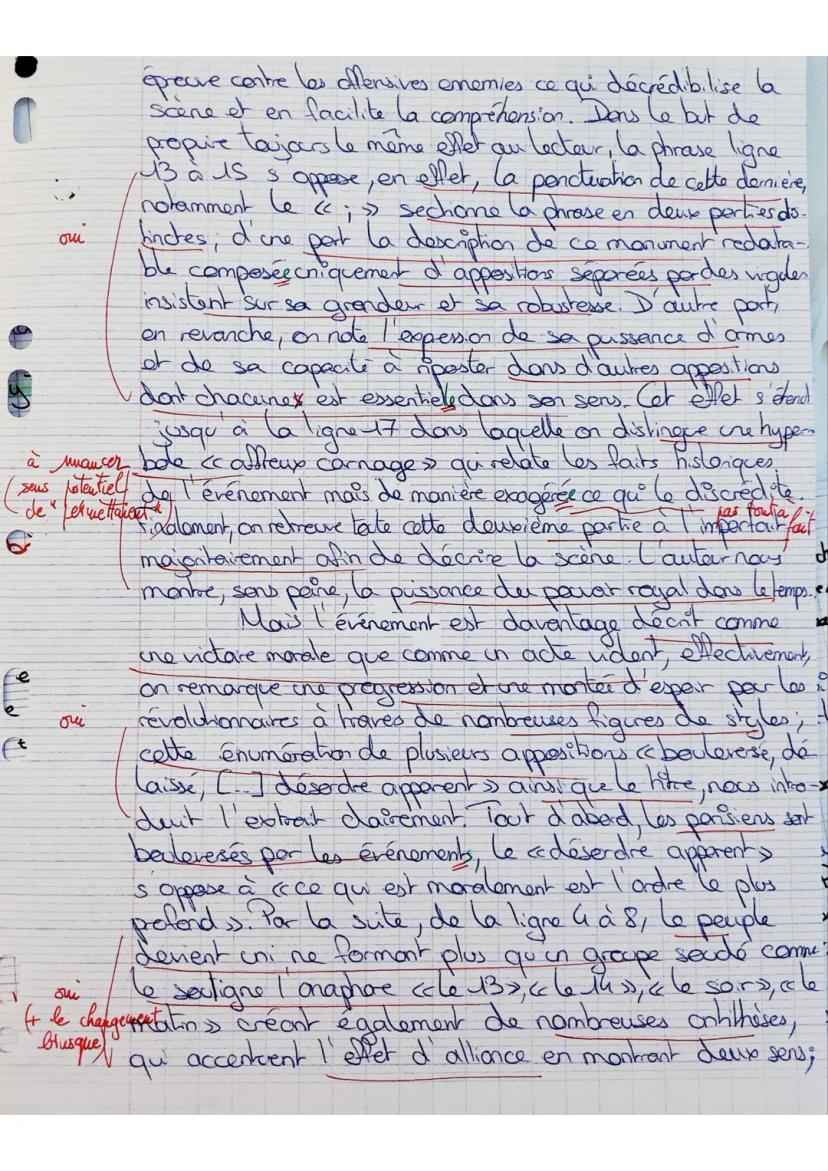 épreuve contre les offensives ennemies ce qui décrédibilise la
scène et en facilite la compréhension. Dans le but de
propire toujours le même effet au lecteur, la phrase ligne
13 à 15 s'oppose, en effet, la ponctuation de cette dernière,
notamment le « ; » sectionne la phrase en deux parties dis-
oui
tinctes ; d'une part la description de ce monument redouta-
ble composée uniquement d'appositions séparées par des virgules
insistent sur sa grandeur et sa robustesse. D'autre part,
en revanche, on note l'expession de sa puissance d'armes
et de sa capacité à riposter dans d'autres appositions
dont chacunes est essentiele dans son sens. Cet effet s'étend
jusqu'à la ligne 17 dans laquelle on distingue une hyper-
à nuancer
bole « affreux carnage » qui relate les faits historiques
(sens potentiel
de l'événement mais de manière exagérée ce qui le discrédite.
de "permettaient")
pas tout à fait
Finalement, on retrouve toute cette deuxième partie à l'imparfait
majoritairement afin de décrire la scène. L'auteur nous
montre, sans peine, la puissance du pouvoir royal dans le temps.
Mais l'événement est davantage décrit comme
une victoire morale que comme un acte violent, effectivement,
on remarque une progression et une montée d'espoir par les
oui
révolutionnaires à travers de nombreuses figures de styles ;
cette énumération de plusieurs appositions « bouleversé, dé-
laissé, [...] désordre apparent » ainsi que le titre, nous intro-
duit l'extrait clairement. Tout d'abord, les parisiens sont
bouleversés par les événements, le « désordre apparent »
s'oppose à « ce qui est moralement est l'ordre le plus
profond ». Par la suite, de la ligne 4 à 8, le peuple
devient uni ne formant plus qu'un groupe soudé comme
oui
le souligne l'anaphore « le 13 », « le 14 », « le soir », « le
(+ le changement
matin » créant également de nombreuses antithèses,
brusque)
qui accentuent l'effet d'alliance en montrant deux sens ;